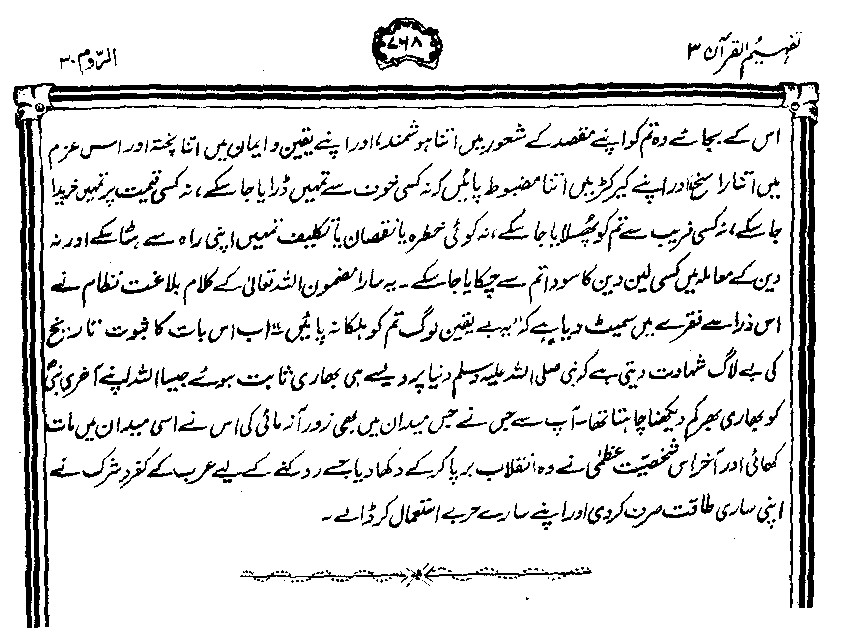 تفہیم القرآن ۳
۷۶۸
الرّوم ۳۰
اس کے بجائے وہ تم کو اپنے مقصد کے شعور میں اتنا ہوشمند، اور اپنے یقین و ایمان میں اتنا پختہ اور اس عزم
میں اتنا راسخ اور اپنے کیرکٹر میں اتنا مضبوط پائیں کہ نہ کسی خوف سے تمہیں ڈرایا جا سکے، نہ کسی قیمت پر تمہیں خریدا
جا سکے، نہ کسی فریب سے تم کو پھسلایا جا سکے، نہ کوئی خطرہ یا نقصان یا تکلیف تمہیں اپنی راہ سے ہٹا سکے اور نہ
دین کے معاملہ میں کسی لین دین کا سودا تم سے چکایا جا سکے۔ یہ سارا مضمون اللہ تعالیٰ کے کلام بلاغت نظام نے
اس ذرا سے فقرے میں سمیٹ دیا ہے کہ ”یہ بے یقین لوگ تم کو ہلکا نہ پائیں“۔ اب اس بات کا ثبوت تاریخ
کی بے لاگ شہادت دیتی ہے کہ نبی صلی اللہ علیہ وسلم دنیا پر ویسے ہی بھاری ثابت ہوئے جیسا اللہ اپنے آخری نبیؐ
کو بھاری بھرکم دیکھنا چاہتا تھا۔ آپ سے جس نے جس میدان میں بھی زور آزمائی کی اس نے اسی میدان میں مات
کھائی اور آخر اس شخصیّت عظمیٰ نے وہ انقلاب برپا کر کے دکھا دیا جسے روکنے کے لیے عرب کے کفر و شرک نے
اپنی ساری طاقت صرف کر دی اور اپنے سارے حربے استعمال کر ڈالے۔